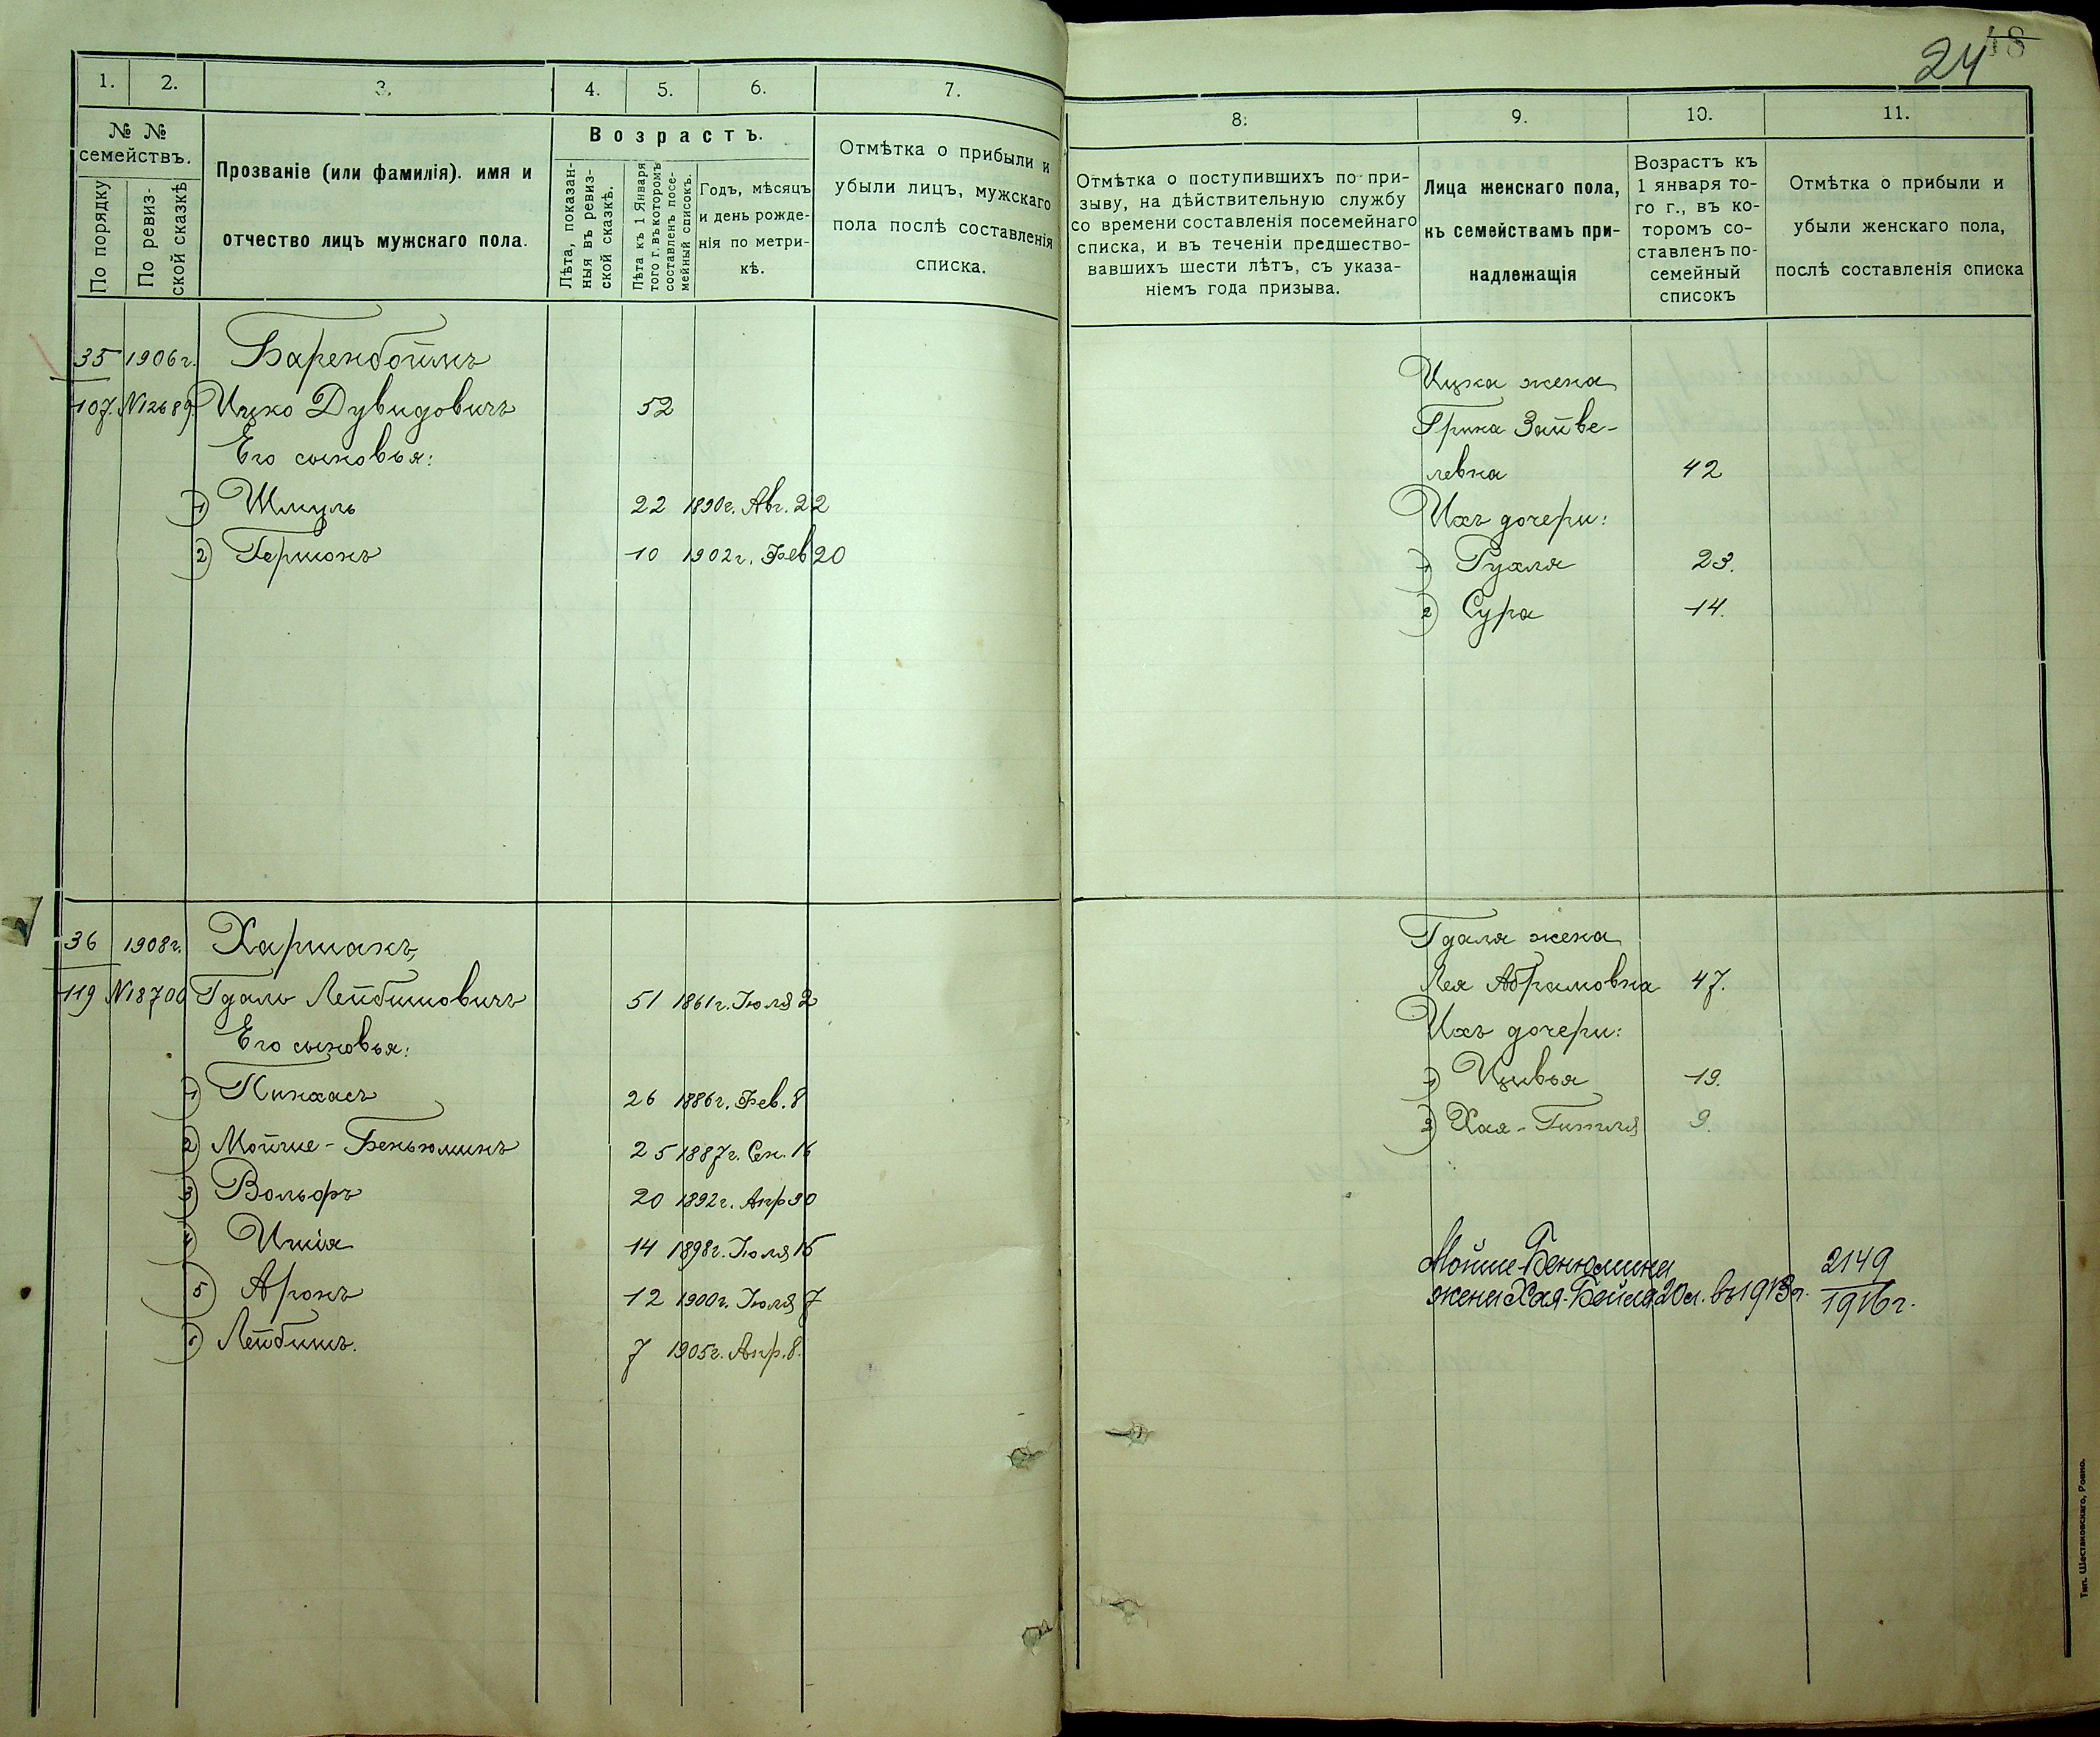 24 18
1. 2. 3. 4. 5. 6. 7.
№ № семействъ.
По порядку
По ревизской сказкѣ
Прозваніе (или фамилія). имя и
отчество лицъ мужскаго пола.
Возрастъ.
Лѣта, показанныя въ ревизской сказкѣ.
Лѣта къ 1 Января того г. въ которомъ составленъ посемейный списокъ.
Годъ, мѣсяцъ
и день рожде-
нія по метри-
кѣ.
Отмѣтка о прибыли и
убыли лицъ, мужскаго
пола послѣ составленія
списка.
35 1906г. Баренбоймъ
107. №12689 Ицко Дувидовичъ 52
Его сыновья:
1) Шмуль 22 1890г. Авг. 22
2) Гершонъ 10 1902г. Фев 20
36 1908г. Харшакъ,
119 №18700 Гдаль Лейбишовичъ 51 1861г. Іюля 2
Его сыновья:
1) Пинхасъ 26 1886г. Фев. 8
2) Мойше-Беньюминъ 25 1887г. Сен. 16
3) Вольфъ 20 1892г. Апр 30
4) Ишія 14 1898г. Іюля 15
5) Аронъ 12 1900г. Іюля 7
6) Лейбишъ. 7 1905г. Апр. 8.
8. 9. 10. 11.
Отмѣтка о поступившихъ по при-
зыву, на дѣйствительную службу
со времени составленія посемейнаго
списка, и въ теченіи предшество-
вавшихъ шести лѣтъ, съ указа-
ніемъ года призыва.
Лица женскаго пола,
къ семействамъ при-
надлежащія
Возрастъ къ
1 января то-
го г., въ ко-
торомъ со-
ставленъ по-
семейный
списокъ
Отмѣтка о прибыли и
убыли женскаго пола,
послѣ составленія списка
Ицка жена
Брика Зайве-
левна 42
Ихъ дочери:
1) Рухля 23.
2) Сура 14.
Гдаля жена
Лея Абрамовна 47.
Ихъ дочери:
1) Цивья 19.
2) Хая-Гитля 9.
Мойше-Бенюмина 2149
жена Хая-Бейля 20 л. въ 1913г. 1916г.
Тип. Шестаковскаго, Ровно.